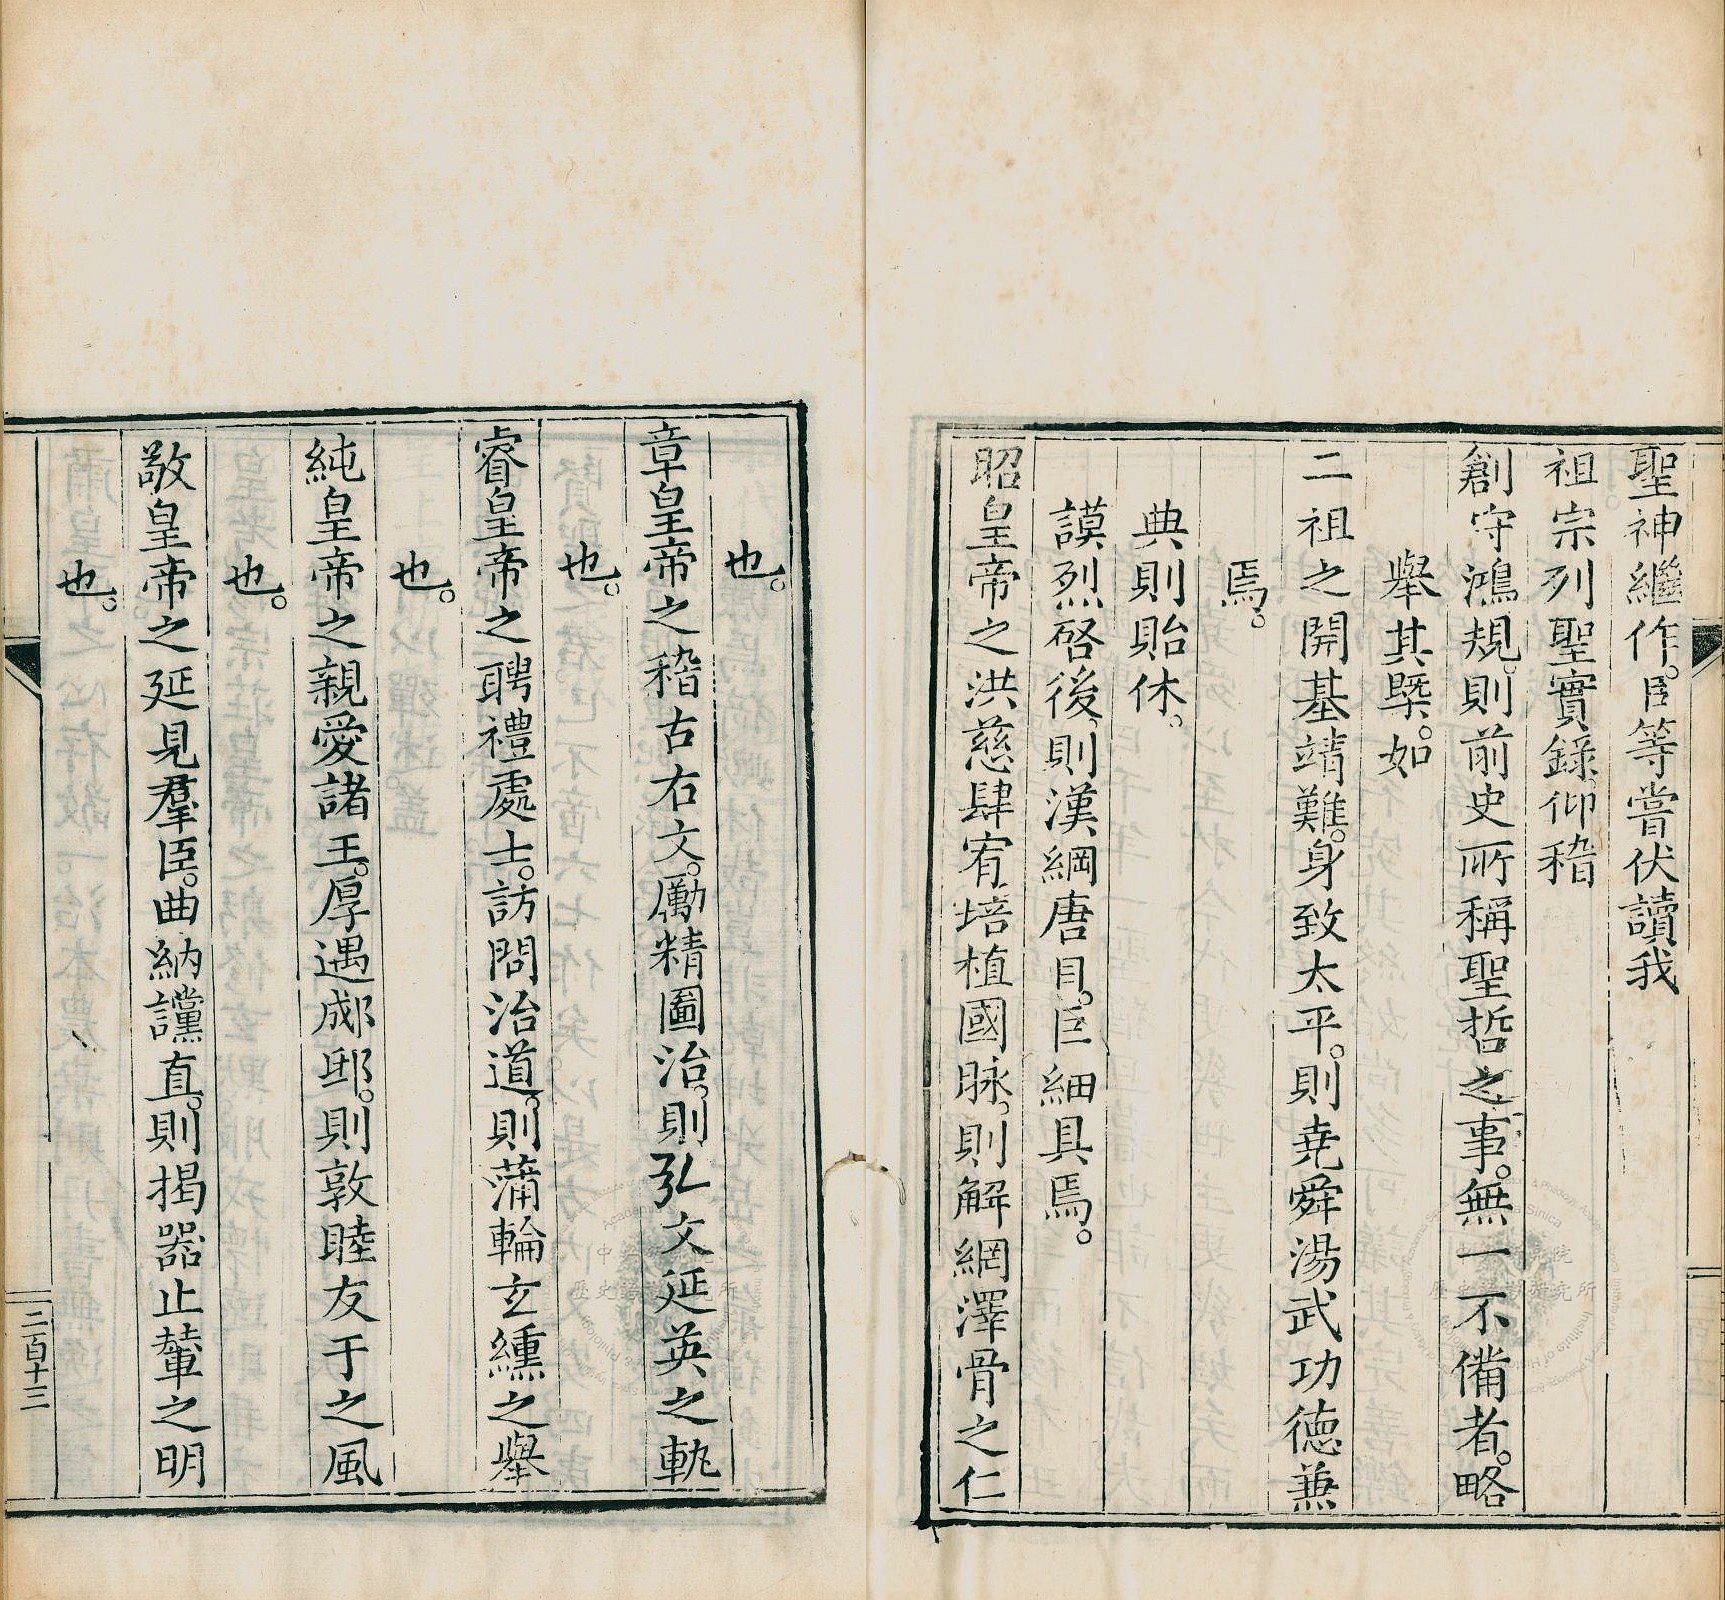 聖神繼作。臣等嘗伏讀我
祖宗列聖實錄。仰稽
創守鴻規。則前史所稱聖哲之事。無一不備者。略
舉其槩。如
二祖之開基靖難。身致太平。則堯舜湯武功德兼
焉。
典則貽休。
謨烈啓後。則漢綱唐目。巨細具焉。
昭皇帝之洪慈肆宥。培植國脉。則解網澤骨之仁
也。
章皇帝之稽古右文。勵精圖治。則弘文延英之軌
也。
睿皇帝之聘禮處士。訪問治道。則蒲輪玄纁之舉
也。
純皇帝之親愛諸王。厚遇郕邸。則敦睦友于之風
也。
敬皇帝之延見羣臣。曲納讜直。則揭器止輦之明
也。
二百十三
中央研究院
歷史語言研究所